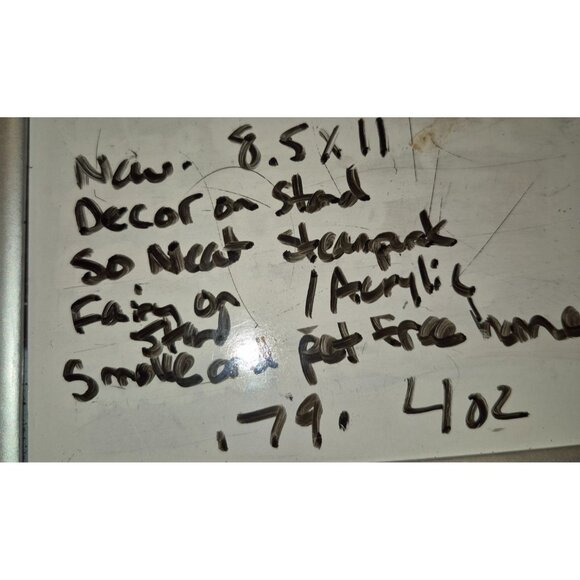 New. 8.5x11
Decor on Stand
So Neat Steampunk
Fairy on
Stand 1 Acrylic
Smoke and pet free home
.79. 4oz